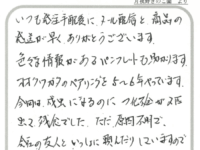 いつも発注手配後に、メール返信と商品の
発送が早く、ありがとうございます。
色々な情報があるパンフレットも助かります。
オオクワガタのペアリングを5〜6年やっています。
今回は、成虫になるのに つ化不全が2匹
出て残念でした。ただ原因不明で、
会社の友人といっしょに頼んだりしていますので